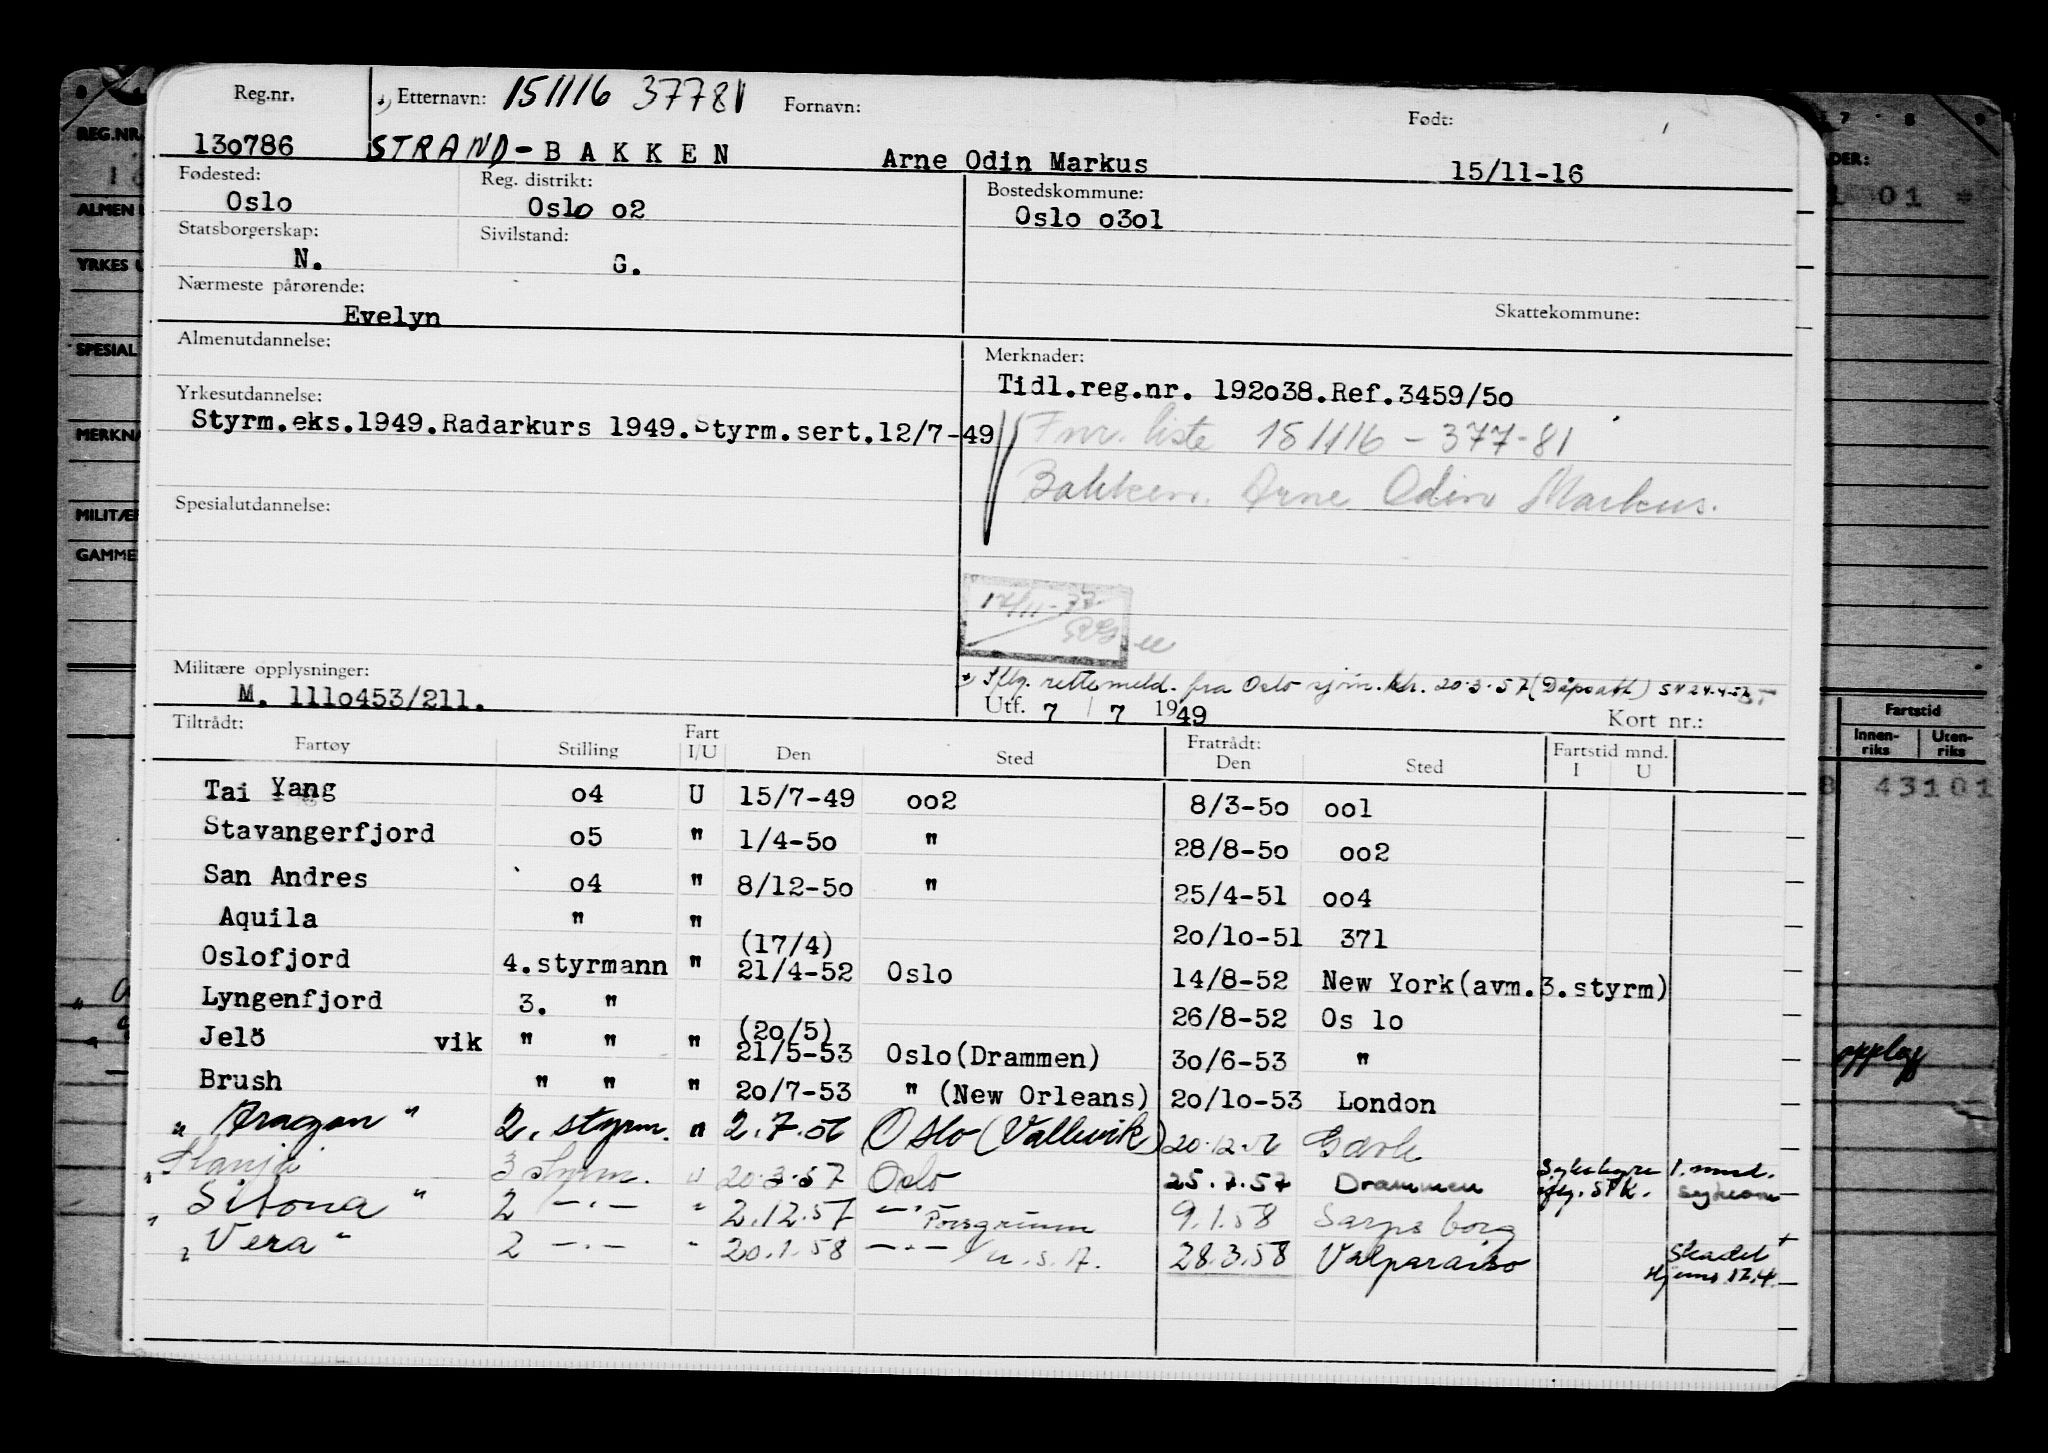 Reg.nr. Etternavn: 151116 37781 Fornavn: Født:
130786 STRAND-BAKKEN Arne Odin Markus 15/11-16
Fødested: Reg. distrikt: Bostedskommune:
Oslo Oslo o2 Oslo o3o1
Statsborgerskap: Sivilstand:
N. G.
Nærmeste pårørende: Skattekommune:
Evelyn
Almenutdannelse: Merknader:
Tidl.reg.nr. 192o38.Ref.3459/5o
Yrkesutdannelse:
Styrm.eks.1949.Radarkurs 1949.Styrm.sert.12/7-49
Fnr. liste 151116 - 377-81
Bakken. Arne Odin Markus.
Spesialutdannelse:
Militære opplysninger:
M. 111o453/211.
Iflg. rettemeld. fra Oslo sjøm.ktr. 20.3.57 (Dåpsatt)
Utf. 7 / 7 1949 Kort nr.:
Tiltrådt: Fart Fratrådt: Fartstid mnd.
Fartøy Stilling I/U Den Sted Den Sted I U
Tai Yang o4 U 15/7-49 oo2 8/3-5o oo1
Stavangerfjord o5 " 1/4-5o " 28/8-5o oo2
San Andres o4 " 8/12-5o " 25/4-51 oo4
Aquila " " 2o/1o-51 371
Oslofjord 4.styrmann " (17/4) 21/4-52 Oslo 14/8-52 New York(avm.3.styrm)
Lyngenfjord 3. " 26/8-52 Os lo
Jelö vik " " " (2o/5) 21/5-53 Oslo(Drammen) 3o/6-53 "
Brush " " " 2o/7-53 " (New Orleans) 2o/1o-53 London
" Aragon " 2. styrm. " 2.7.56 Oslo (Vallvik) 20.12.56 Gävle
" 3 styrm. " 20.3.57 Oslo 25.7.57 Drammen Sykehyre 1. mnd.
iflg. SFK.
" Sitona " 2 -"- " 2.12.57 -"- Porsgrunn 9.1.58 Sarpsborg
" Vera " 2 -"- " 20.1.58 -"- / U.S.A. 28.3.58 Valparaiso Skadet
Hjems 17.4.
REG.NR.
ALMEN
YRKES U
SPESIAL
MERKNA
MILITÆR
GAMME
7 8 9
DER:
1 01 *
Fartstid
Innen-riks Uten-riks
8 43101
opplagt